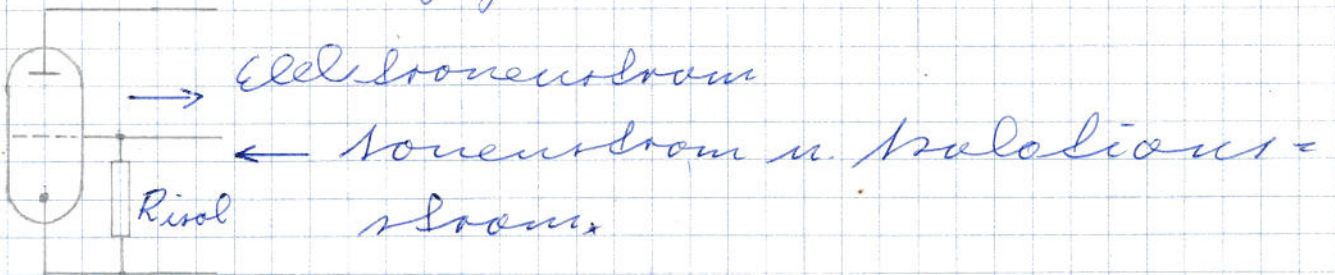 Elektronenstrom
Ionenstrom u. Isolations=
strom.
Risol